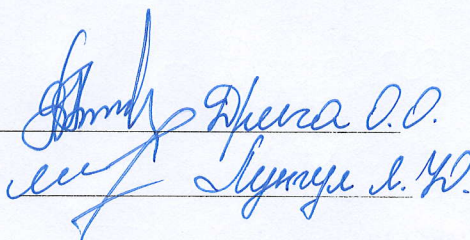 Дрига О.О.
Лунгул Л.Ю.